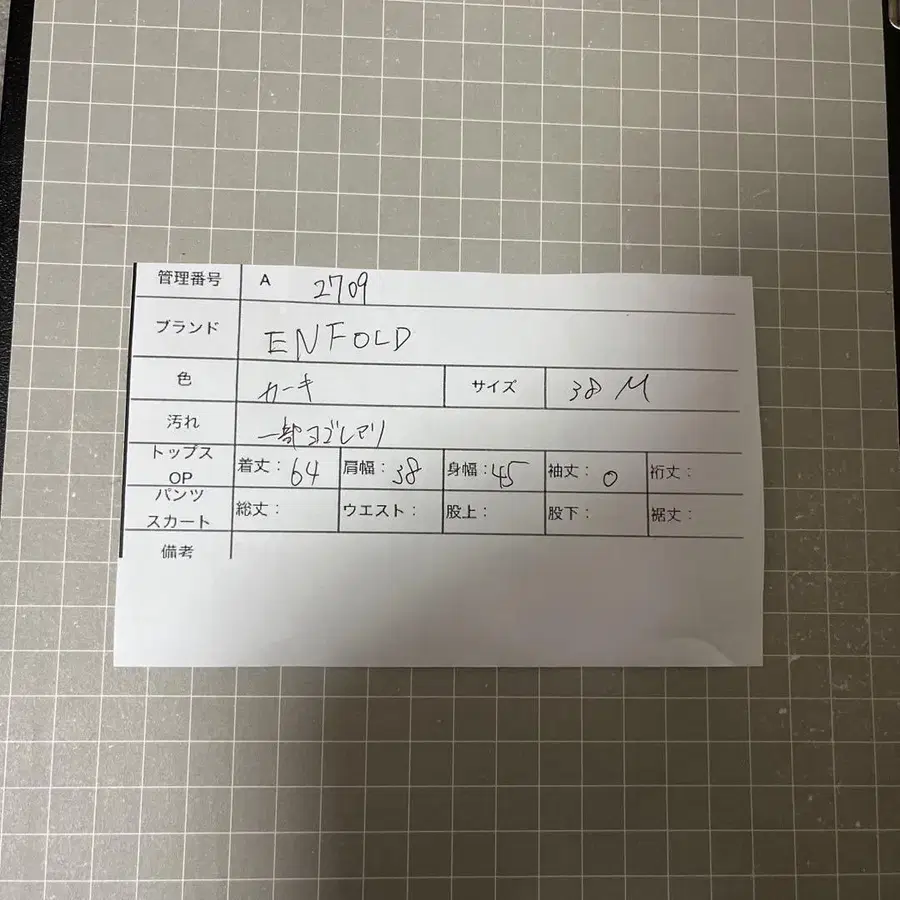 管理番号 A 2709
ブランド ENFOLD
色 カーキ サイズ 38 M
汚れ 一部ヨゴレアリ
トップス
OP 着丈：64 肩幅：38 身幅：45 袖丈：0 裄丈：
パンツ
スカート 総丈： ウエスト： 股上： 股下： 裾丈：
備考